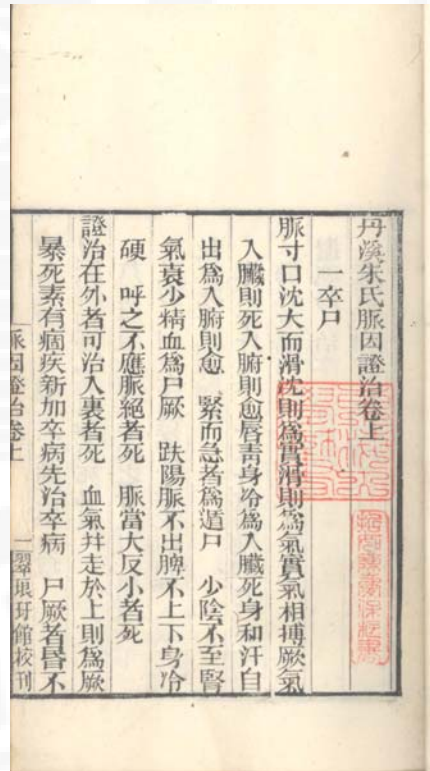 丹溪朱氏脈因證治卷上
一卒尸
脈寸口沈大而滑沈則爲實滑則爲氣實氣相搏厥氣
入臟則死入腑則愈唇靑身冷爲入臟死身和汗自
出爲入腑則愈　緊而急者爲遁尸　少陰不至腎
氣衰少精血爲尸厥　趺陽脈不出脾不上下身冷
硬　呼之不應脈絕者死　脈當大反小者死
證治在外者可治入裏者死　血氣幷走於上則爲厥
暴死素有痼疾新加卒病先治卒病　尸厥者昏不
脈因證治卷上　一翠琅玕館校刊